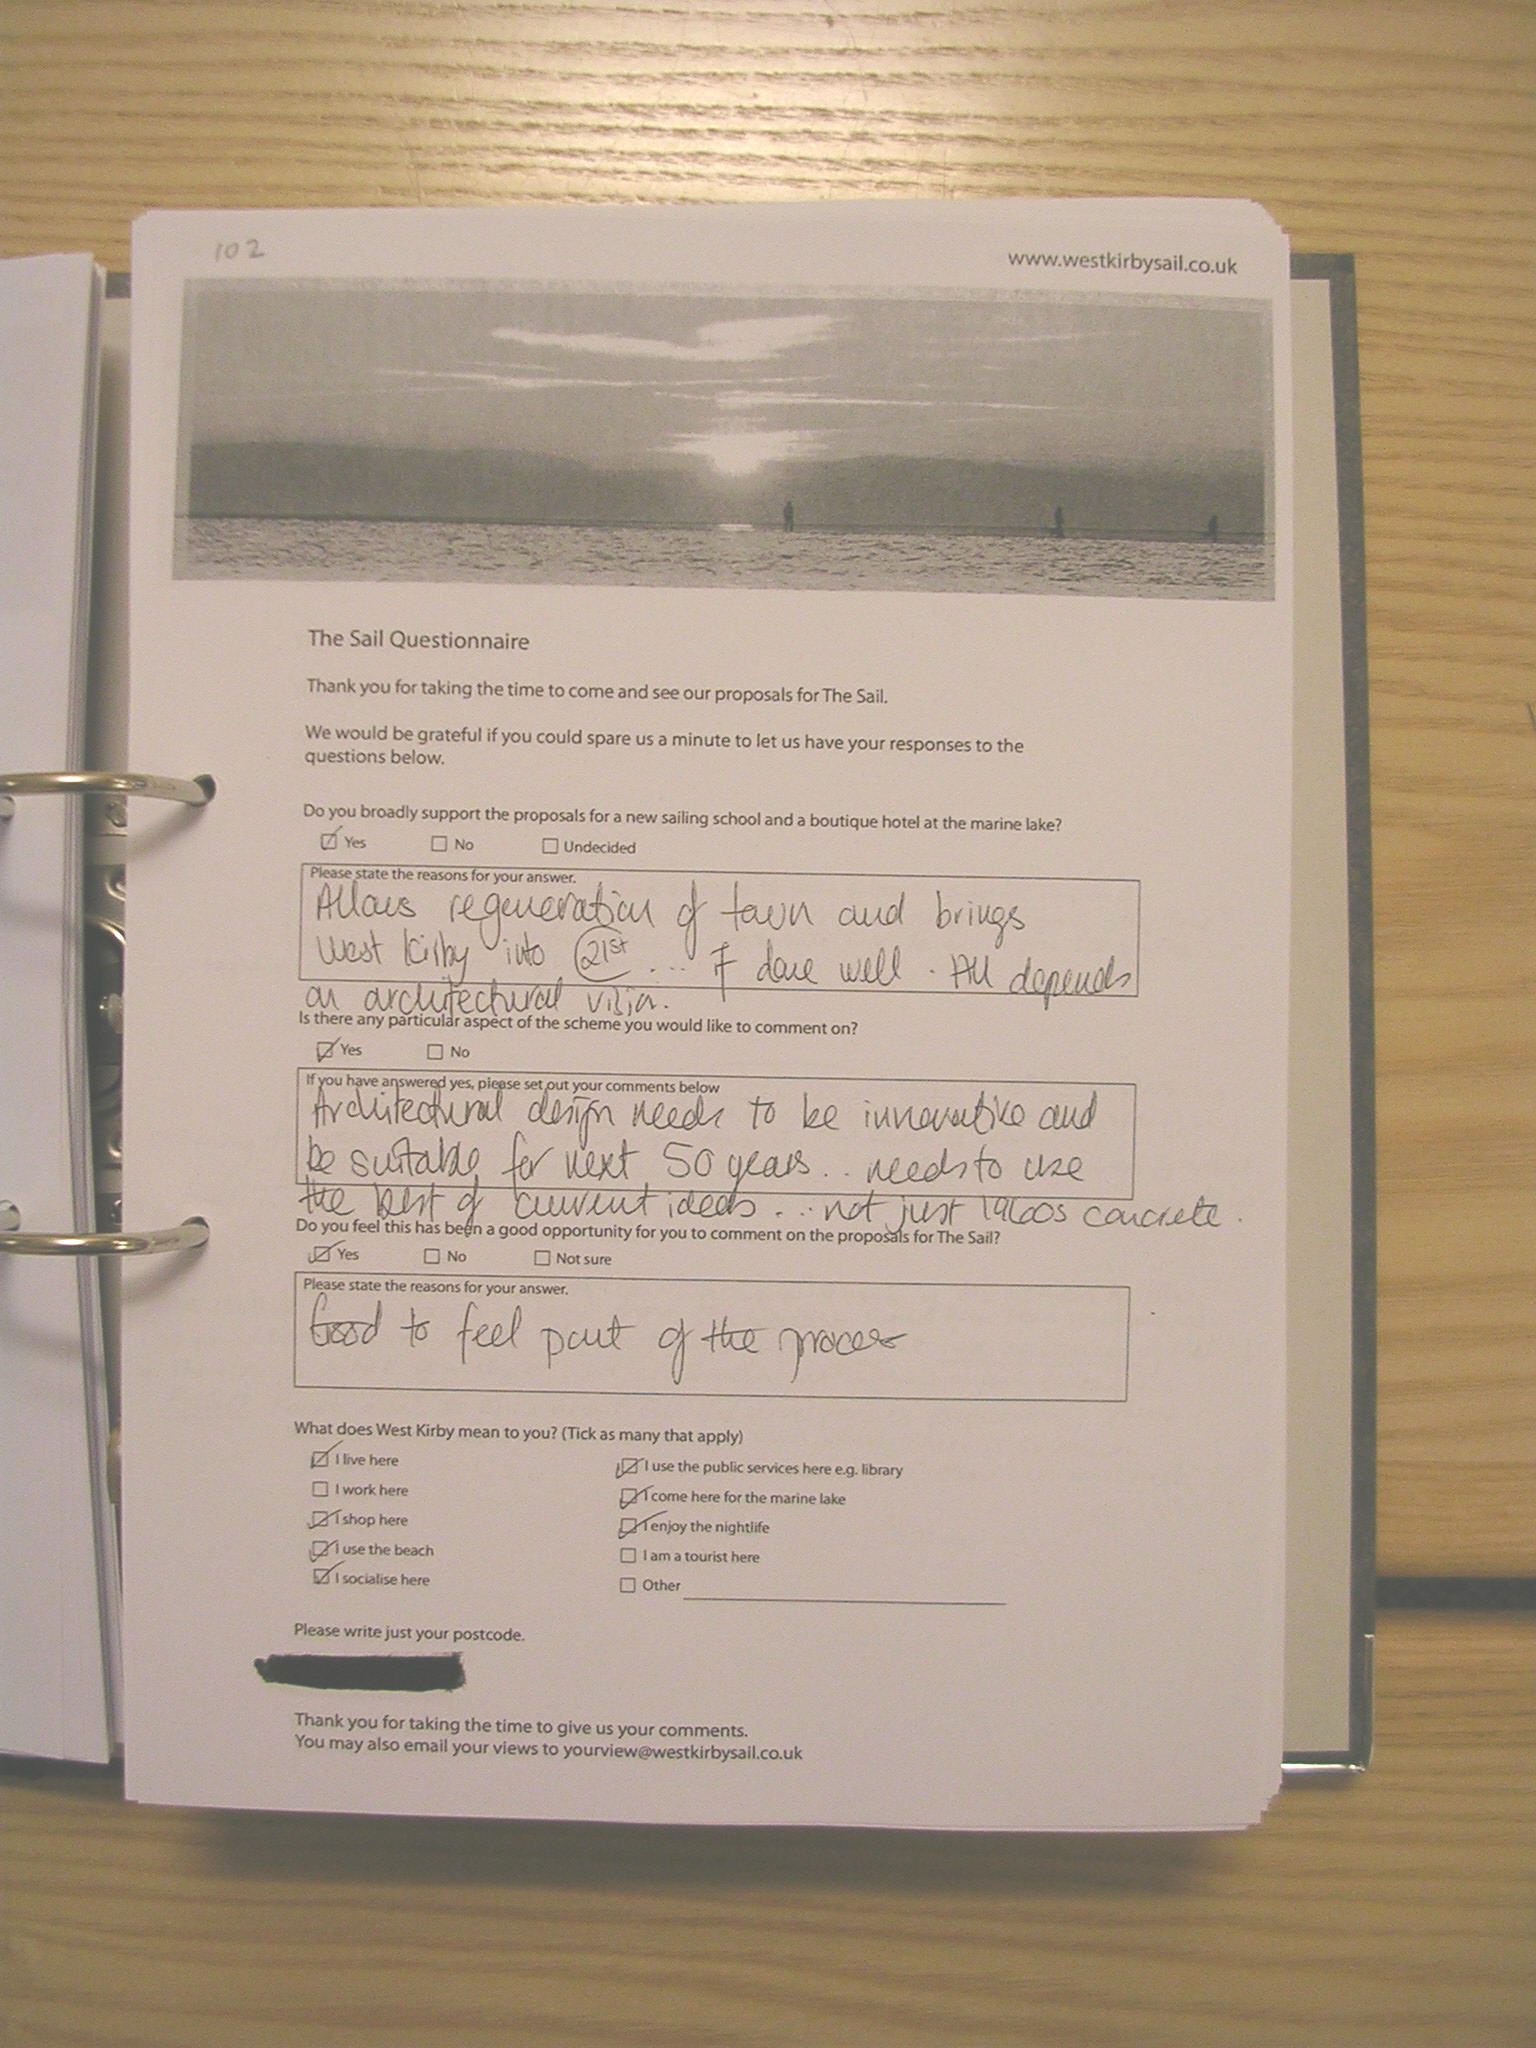 102
www.westkirbysail.co.uk
The Sail Questionnaire
Thank you for taking the time to come and see our proposals for The Sail.
We would be grateful if you could spare us a minute to let us have your responses to the
questions below.
Do you broadly support the proposals for a new sailing school and a boutique hotel at the marine lake?
Yes No Undecided
Please state the reasons for your answer.
Allows regeneration of town and brings
West Kirby into 21st ... if done well. All depends
on architectural vision.
Is there any particular aspect of the scheme you would like to comment on?
Yes No
If you have answered yes, please set out your comments below
Architectural design needs to be innovative and
be suitable for next 50 years.. needs to use
the best of current ideas... not just 1960s concrete.
Do you feel this has been a good opportunity for you to comment on the proposals for The Sail?
Yes No Not sure
Please state the reasons for your answer.
Good to feel part of the process
What does West Kirby mean to you? (Tick as many that apply)
I live here
I work here
I shop here
I use the beach
I socialise here
I use the public services here e.g. library
I come here for the marine lake
I enjoy the nightlife
I am a tourist here
Other
Please write just your postcode.
Thank you for taking the time to give us your comments.
You may also email your views to yourview@westkirbysail.co.uk